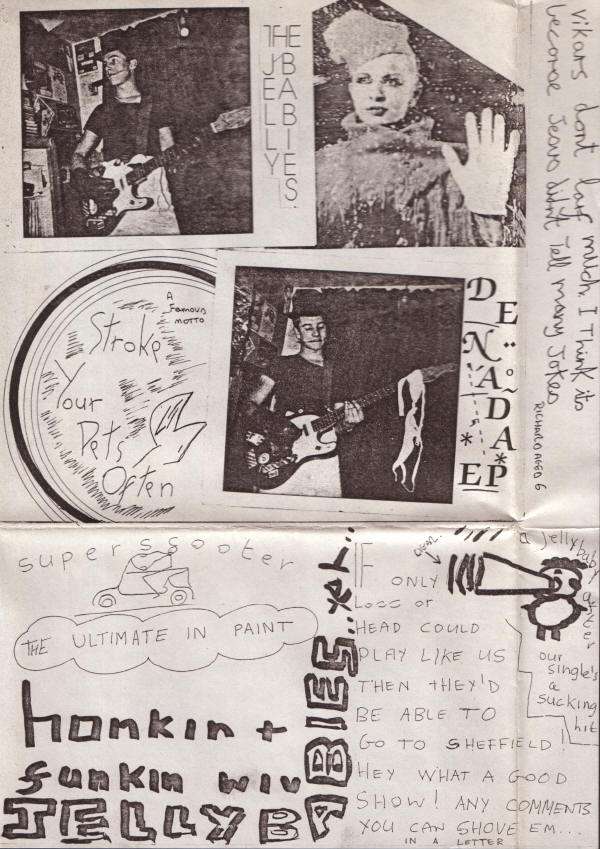 THE
JELLY
BABIES
vikars dont laff mutch. I Think its
becorse Jesus didnt Tell many Jokes
RICHARD AGED 6
A
Famous
MOTTO
Stroke
Your
Pets
Often
DE
NADA
EP
superscooter
THE ULTIMATE IN PAINT
honkin +
funkin wiv
JELLYBABIES..yeh..
IF
ONLY
Loss or
HEAD COULD
PLAY LIKE US
THEN THEY'D
BE ABLE TO
GO TO SHEFFIELD!
HEY WHAT A GOOD
SHOW! ANY COMMENTS
YOU CAN SHOVE EM...
IN A LETTER
a jellybaby
after
our
single's
a
sucking
hit